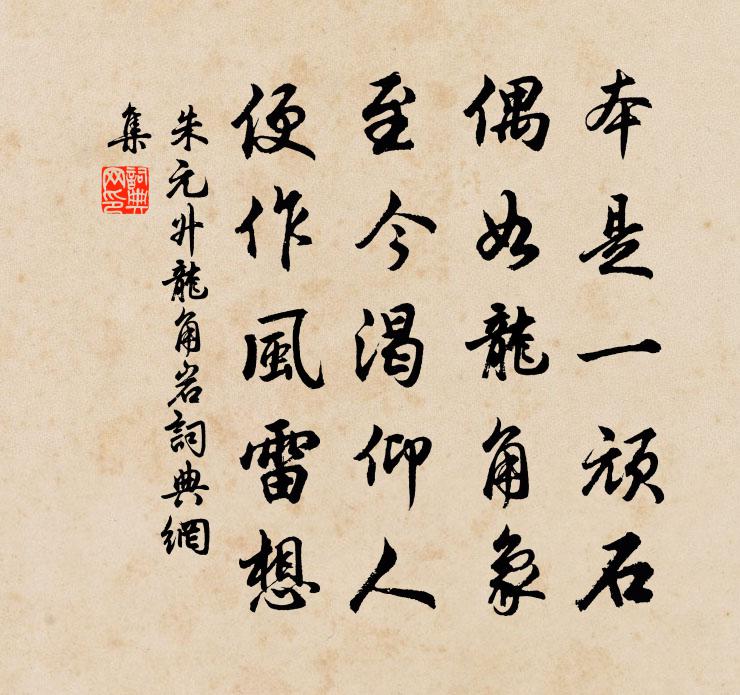 本是一頑石
偶如龍角象
至今渴仰人
便作風雷想
朱元升龍角岩詞典網
集
詞典
网印